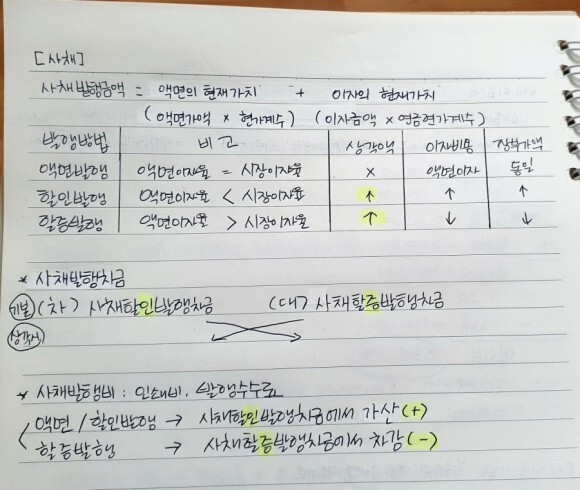 [사채]
사채발행금액 = 액면의 현재가치 + 이자의 현재가치
(액면가액 × 현가계수) (이자금액 × 연금현가계수)
발행방법 비고 상각액 이자비용 장부가액
액면발행 액면이자율 = 시장이자율 × 액면이자 동일
할인발행 액면이자율 < 시장이자율 ↑ ↑ ↑
할증발행 액면이자율 > 시장이자율 ↑ ↓ ↓
* 사채발행차금
기본 (차) 사채할인발행차금 (대) 사채할증발행차금
상각시
* 사채발행비 : 인쇄비, 발행수수료
액면 / 할인발행 → 사채할인발행차금에서 가산 (+)
할증발행 → 사채할증발행차금에서 차감 (-)